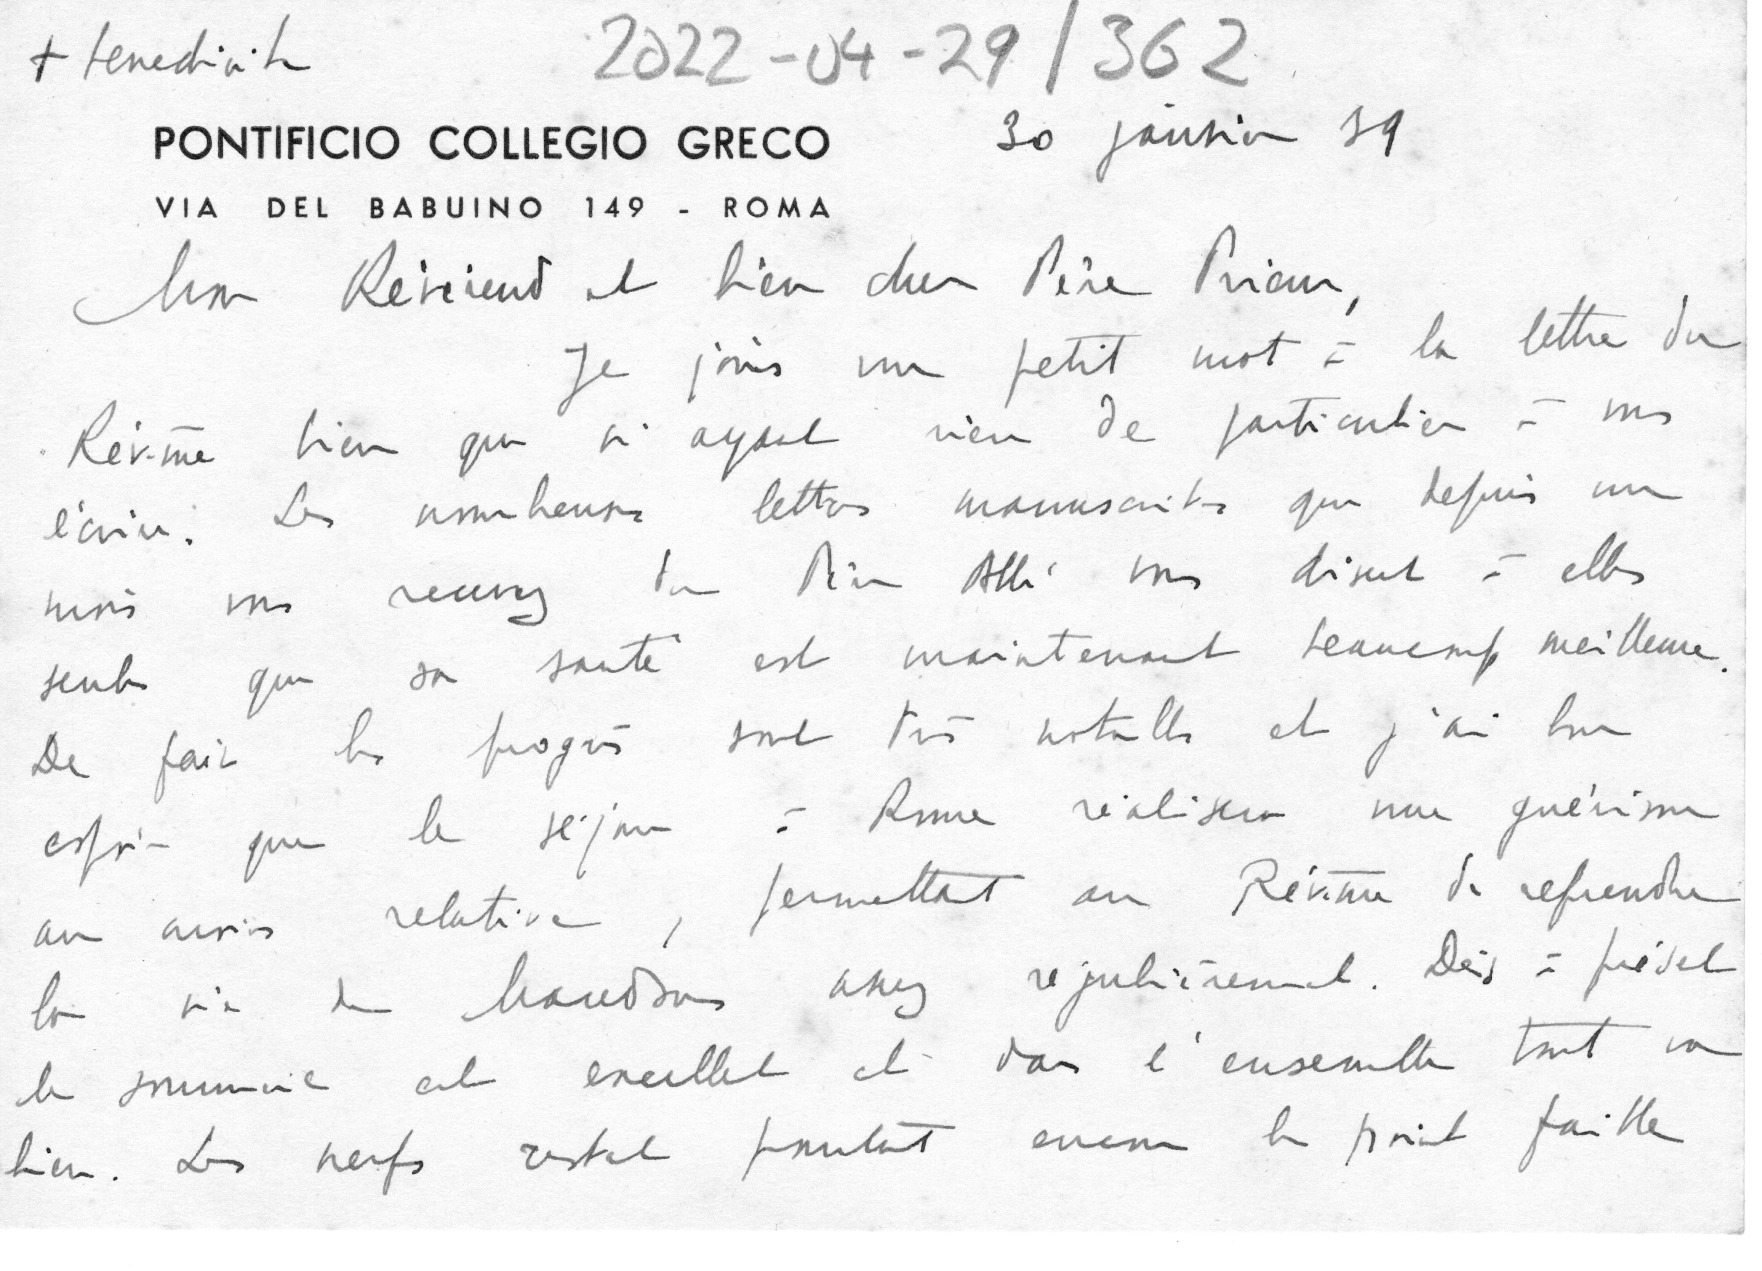 + benedicite
2022-04-29/362
PONTIFICIO COLLEGIO GRECO
30 janvier 59
VIA DEL BABUINO 149 - ROMA
Mon Révérend et bien cher Père Prieur,
Je joins un petit mot à la lettre du
Rév.me bien que n'ayant rien de particulier à vous
écrire. Les nombreuses lettres manuscrites que depuis un
mois vous recevez du Père Abbé vous disent à elles
seules que sa santé est maintenant beaucoup meilleure.
De fait les progrès sont très notables et j'ai bon
espoir que le séjour à Rome réalisera une guérison
au moins relative, permettant au Rév.me de reprendre
la vie de assez régulièrement. Dès à présent
le sommeil est excellent et dans l'ensemble tout va
bien. Les nerfs restent pourtant encore le point faible